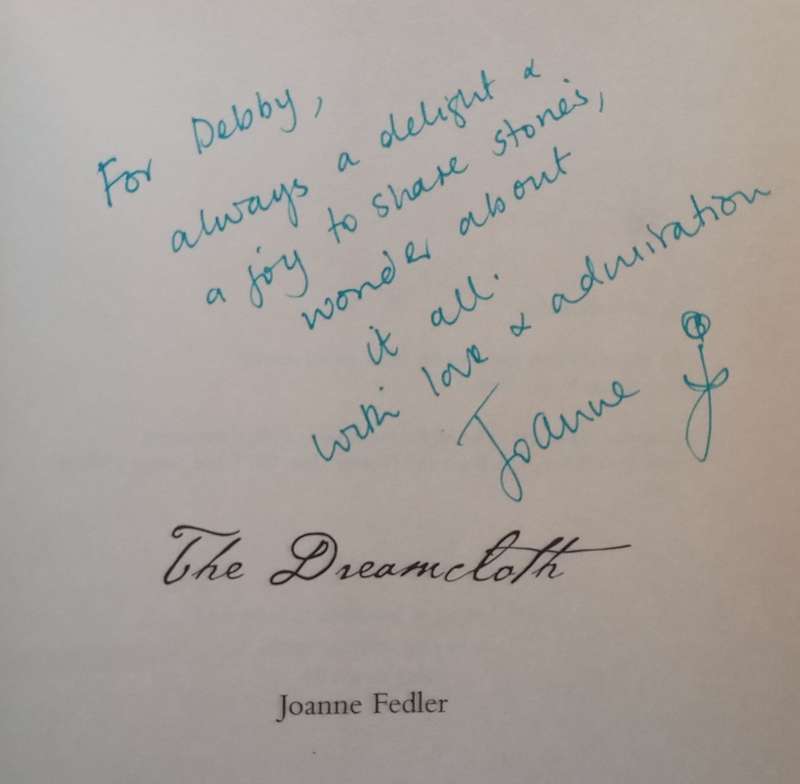 For Debby,
always a delight &
a joy to share stories,
wonder about
it all.
with love & admiration
Joanne
The Dreamcloth
Joanne Fedler